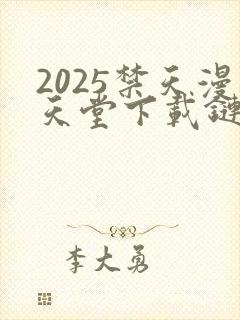 2025禁天漫
天堂下載鏈
李大勇